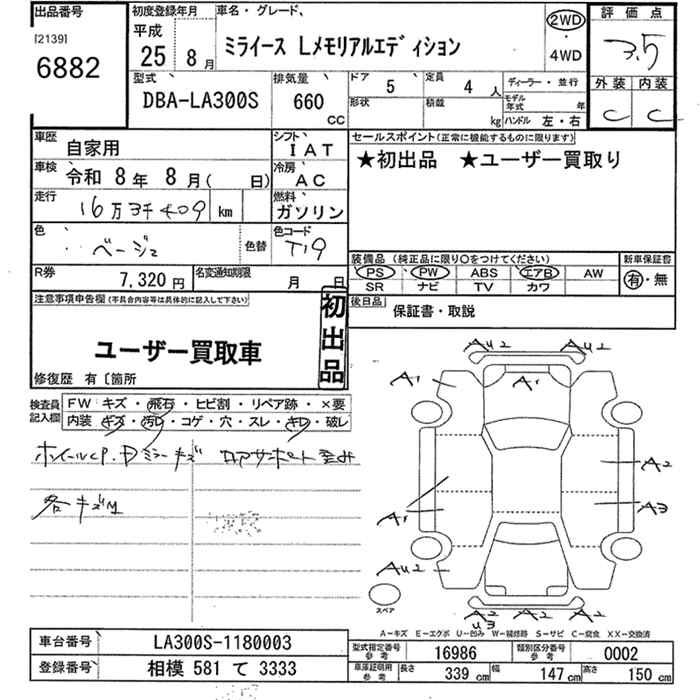 出品番号
[2139]
6882
初度登録年月
平成
25 8月
車名・グレード、
ミライース Lメモリアルエディション
2WD
・
4WD
評価点
3.5
外装 内装
C C
型式
DBA-LA300S
排気量
660
CC
ドア 5 定員 4人
形状 積載 kg
ディーラー・並行
モデル年式 年
ハンドル 左・右
車歴 自家用
シフト IAT
車検 令和 8年 8月( 日)
冷房 AC
走行 16万3千409 km
燃料 ガソリン
色 ベージュ 色替
色コード T19
R券 7,320円
名変通知期限 月 日
セールスポイント(正常に機能するものに限ります)
★初出品 ★ユーザー買取り
装備品(純正品に限り〇をつけてください)
PS PW ABS エアB AW
SR ナビ TV カワ
新車保証書
有・無
後日品
保証書・取説
注意事項申告欄(不具合内容等は具体的に記入して下さい)
初出品
ユーザー買取車
修復歴 有〔箇所
検査員記入欄
FW キズ・飛石・ヒビ割・リペア跡・×要
内装 キズ・汚レ・コゲ・穴・スレ・キレ・破レ
ホイールCP.Dミラーキズ ロアサポート歪み
各キズ
AU2 AU2
A1 A1
A2
A1 A3
AU2
A2 A2 A2
U3
スペア
A-キズ E-エグボ U-凹み W-補修跡 S-サビ C-腐食 XX-交換済
車台番号 LA300S-1180003
登録番号 相模 581 て 3333
型式指定番号 参考 16986
類別区分番号 参考 0002
車庫証明用 参考 長さ 339 cm 幅 147 cm 高さ 150 cm